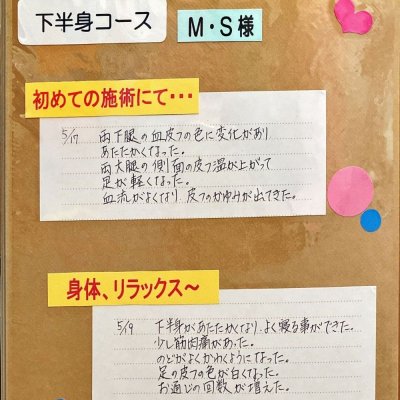 下半身コース
M・S様
初めての施術にて・・・
5/17 両下腿の血皮フの色に変化があり
あたたかくなった。
両大腿の側面の皮フ温が上がって
足が軽くなった。
血流がよくなり 皮フのかゆみが出てきた。
身体、リラックス～
5/19 下半身があたたかくなり、よく寝る事ができた。
少し筋肉痛があった。
のどがよくかわくようになった。
足の皮フの色が白くなった。
お通じの回数が増えた。